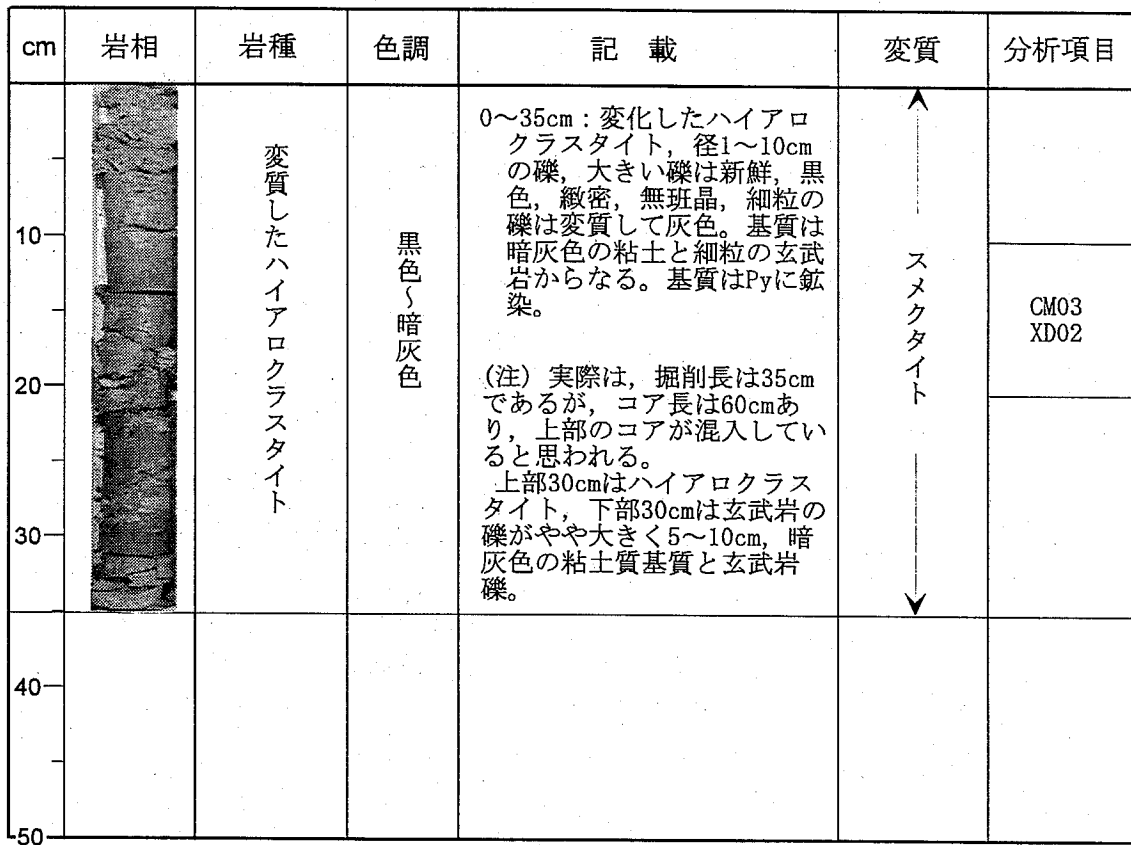 cm 岩相 岩種 色調 記 載 変質 分析項目
10
20
30
40
50
変質したハイアロクラスタイト
黒色～暗灰色
0～35cm：変化したハイアロ
クラスタイト，径1～10cm
の礫，大きい礫は新鮮，黒
色，緻密，無班晶，細粒の
礫は変質して灰色。基質は
暗灰色の粘土と細粒の玄武
岩からなる。基質はPyに鉱
染。
(注) 実際は，掘削長は35cm
であるが，コア長は60cmあ
り，上部のコアが混入してい
ると思われる。
上部30cmはハイアロクラス
タイト，下部30cmは玄武岩の
礫がやや大きく5～10cm，暗
灰色の粘土質基質と玄武岩
礫。
スメクタイト
CM03
XD02